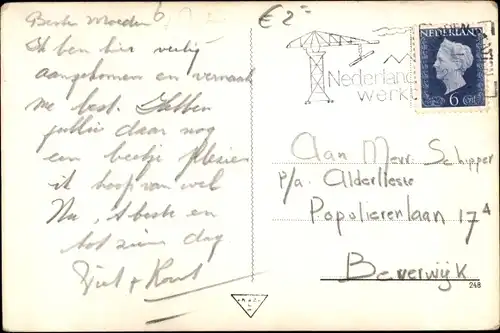 Beste Moeder
Ik ben hier veilig
aangekomen en vermaak
me best. Hebben
jullie daar nog
een beetje plezier
ik hoop van wel
Nu, 't beste en
tot ziens dag
Piet +
€ 2=
Nederland
werkt
NEDERLAND
6 ct
Aan Mevr Schipper
p/a.
Populierenlaan 17A
Beverwijk
248